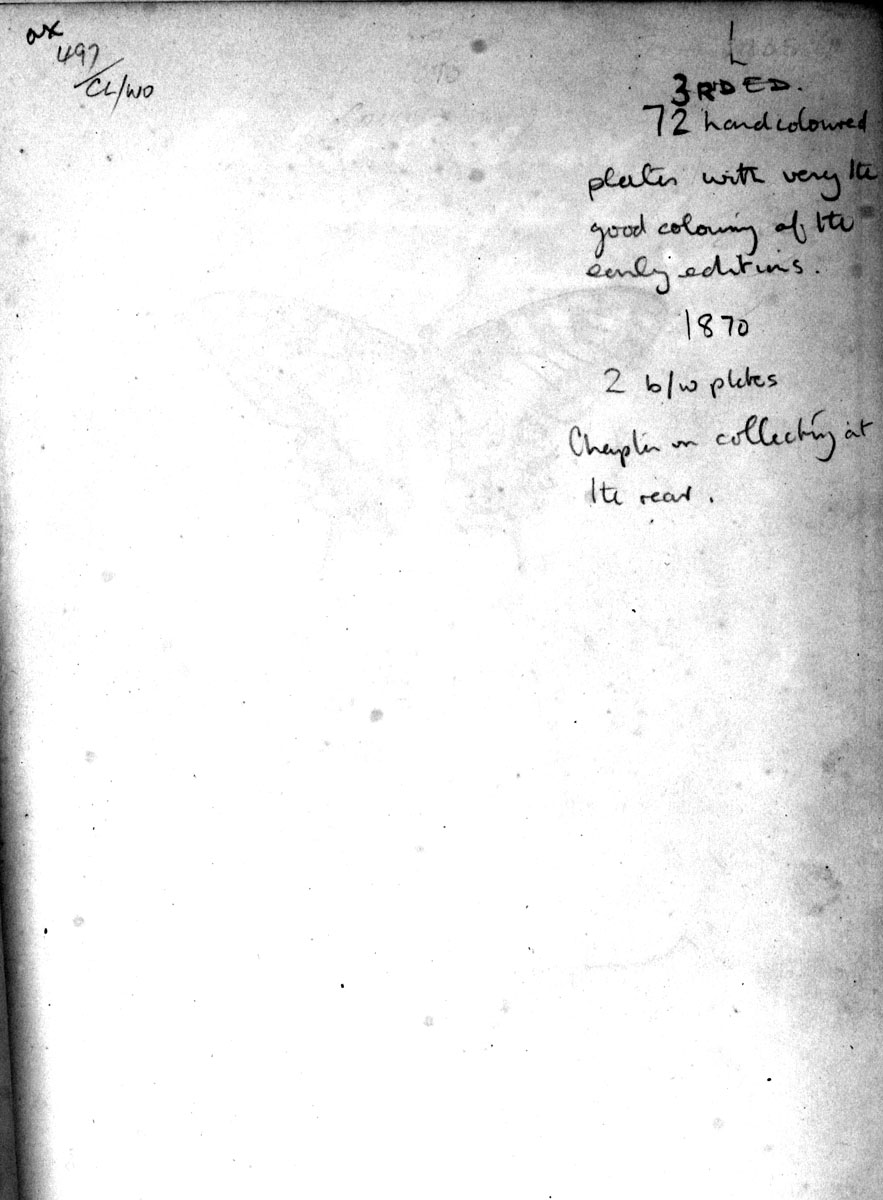 ax
497/CL/WO
3RD ED.
72 handcoloured
plates with very the
good colouring of the
early editions.
1870
2 b/w plates
Chapter on collecting at
the rear.